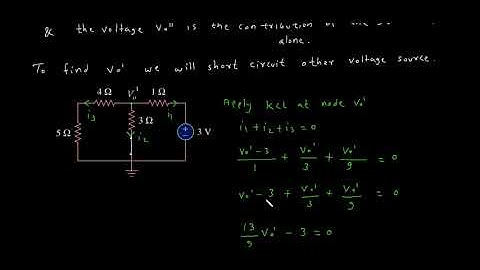 & the voltage Vo'' is the contribution of the
alone.
To find Vo' we will short circuit other voltage source.
4 Ω Vo' 1 Ω
i3 i1
5 Ω 3 Ω i2 3 V
Apply kcl at node Vo'
i1 + i2 + i3 = 0
Vo' - 3 / 1 + Vo' / 3 + Vo' / 9 = 0
Vo' - 3 + Vo' / 3 + Vo' / 9 = 0
13 / 9 Vo' - 3 = 0